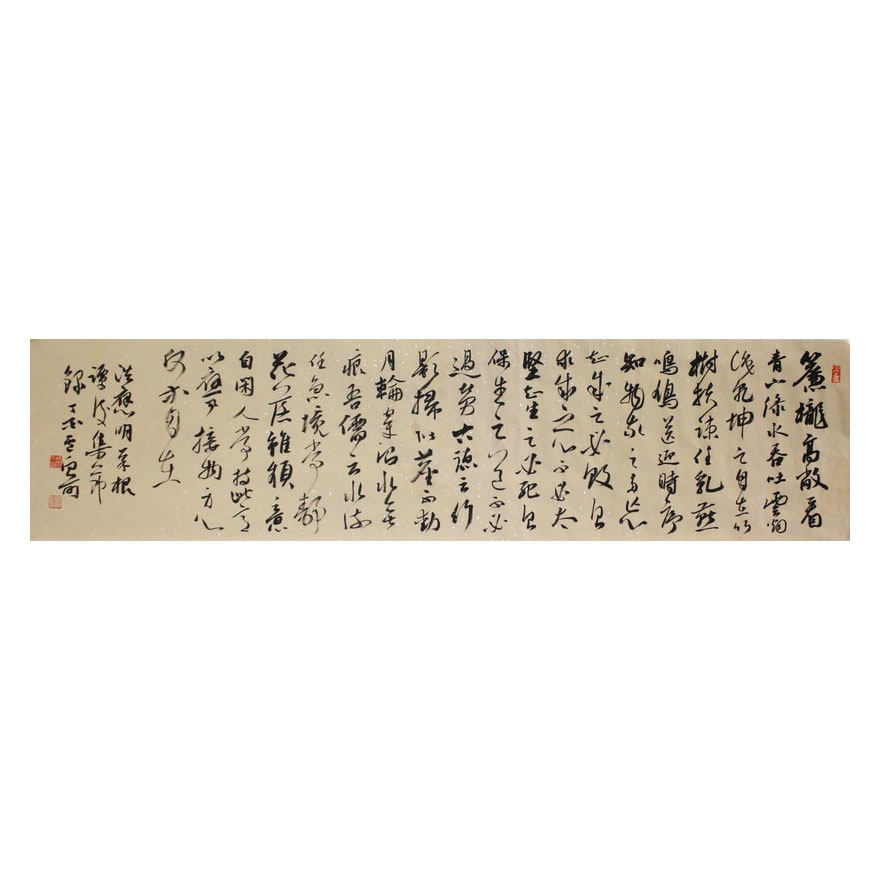 簾櫳高敞看
青山綠水吞吐雲烟
識乾坤之自在竹
樹扶疎任乳燕
鳴鳩送迎時序
知物我之兩忘
知成之必敗則
求成之心不必太
堅知生之必死則
保生之道不必
過勞古德云竹
影掃階塵不動
月輪穿沼水無
痕吾儒云水流
任急境常靜
花落雖頻意
自閑人常持此意
以應事接物身心
何等自在
洪應明菜根
譚後集
錄丁亥